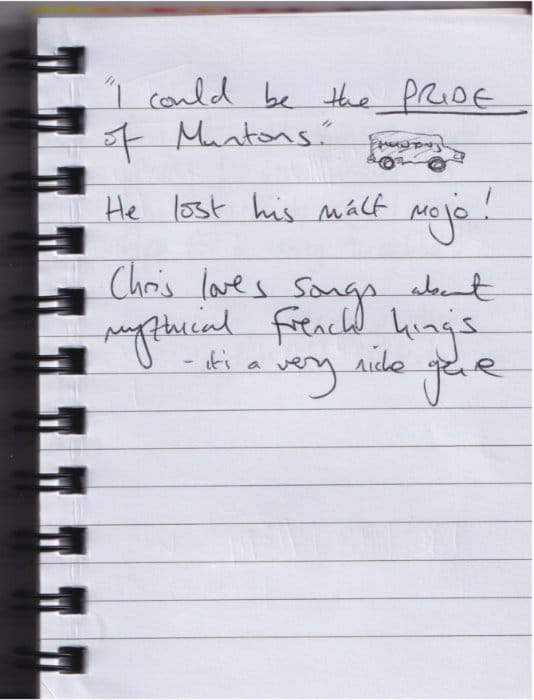 "I could be the PRIDE
of Muntons."
MUNTONS
He lost his malt mojo!
Chris loves songs about
mythical French kings
- it's a very niche genre